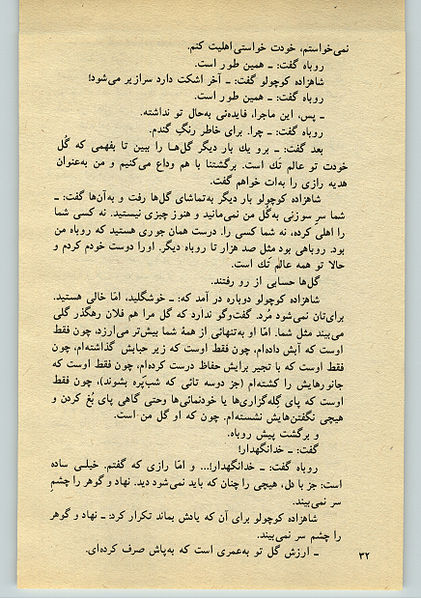 نمی‌خواستم، خودت خواستی اهلیت کنم.
روباه گفت: ـ همین طور است.
شاهزاده کوچولو گفت: ـ آخر اشکت دارد سرازیر می‌شود!
روباه گفت: ـ همین طور است.
ـ پس، این ماجرا، فایده‌ئی به‌حال تو نداشته.
روباه گفت: ـ چرا. برای خاطر رنگِ گندم.
بعد گفت: ـ برو یك بار دیگر گل‌هـا را ببین تا بفهمی که گُل
خودت تو عالم تَك است. برگشتنا با هم وداع می‌کنیم و من به‌عنوان
هدیه رازی را به‌ات خواهم گفت.
شاهزاده کوچولو بار دیگر به‌تماشای گل‌ها رفت و به‌آن‌ها گفت: ـ
شما سر سوزنی به‌گُل من نمی‌مانید و هنوز چیزی نیستید. نه کسی شما
را اهلی کرده، نه شما کسی را. درست همان جوری هستید که روباه من
بود. روباهی بود مثل صد هزار تا روباه دیگر. او را دوست خودم کردم و
حالا تو همه عالم تَك است.
گل‌ها حسابی از رو رفتند.
شاهزاده کوچولو دوباره در آمد که: ـ خوشگلید، امّا خالی هستید.
برای‌تان نمی‌شود مُرد. گفت‌وگو ندارد که گل مرا هم فلان رهگذر گلی
می‌بیند مثل شما. امّا او به‌تنهائی از همهٔ شما بیش‌تر می‌ارزد، چون فقط
اوست که آبش داده‌ام، چون فقط اوست که زیر حبابش گذاشته‌ام، چون
فقط اوست که با تجیر برایش حفاظ درست کرده‌ام، چون فقط اوست که
جانورهایش را کشته‌ام (جز دوسه تائی که شب‌پَره بشوند)، چون فقط
اوست که پای گِله‌گزاری‌ها یا خودنمائی‌ها وحتی گاهی پای بُغ کردن و
هیچی نگفتن‌هایش نشسته‌ام. چون که او گلِ من است.
و برگشت پیش روباه.
گفت: ـ خدانگهدار!
روباه گفت: ـ خدانگهدار!... و امّا رازی که گفتم. خیلـی ساده
است: جز با دل، هیچی را چنان که باید نمی‌شود دید. نهاد و گوهر را چشمِ
سر نمی‌بیند.
شاهزاده کوچولو برای آن که یادش بماند تکرار کرد: ـ نهاد و گوهر
را چشم سر نمی‌بیند.
ـ ارزش گل تو به‌عمری است که به‌پاش صرف کرده‌ای.
۳۲